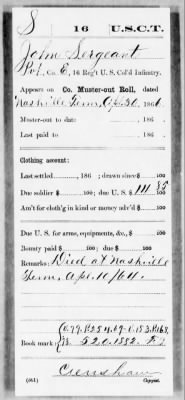 S 16 U.S.C.T.
John Sergeant
Pvt., Co. E, 16 Reg't U. S. Col'd Infantry.
Appears on Co. Muster-out Roll, dated
Nashville Tenn, Apl. 30, 1866.
Muster-out to date , 186 .
Last paid to , 186 .
Clothing account:
Last settled , 186 ; drawn since $ 100
Due soldier $ 100; due U. S. $ 111 35/100
Am't for cloth'g in kind or money adv'd $ 100
Due U. S. for arms, equipments, &c., $ 100
Bounty paid $ 100; due $ 100
Remarks: Died at Nashville
Tenn. Apl. 10/64.
Book mark:
B. 520.1882.
Crenshaw
(361) Copyist.